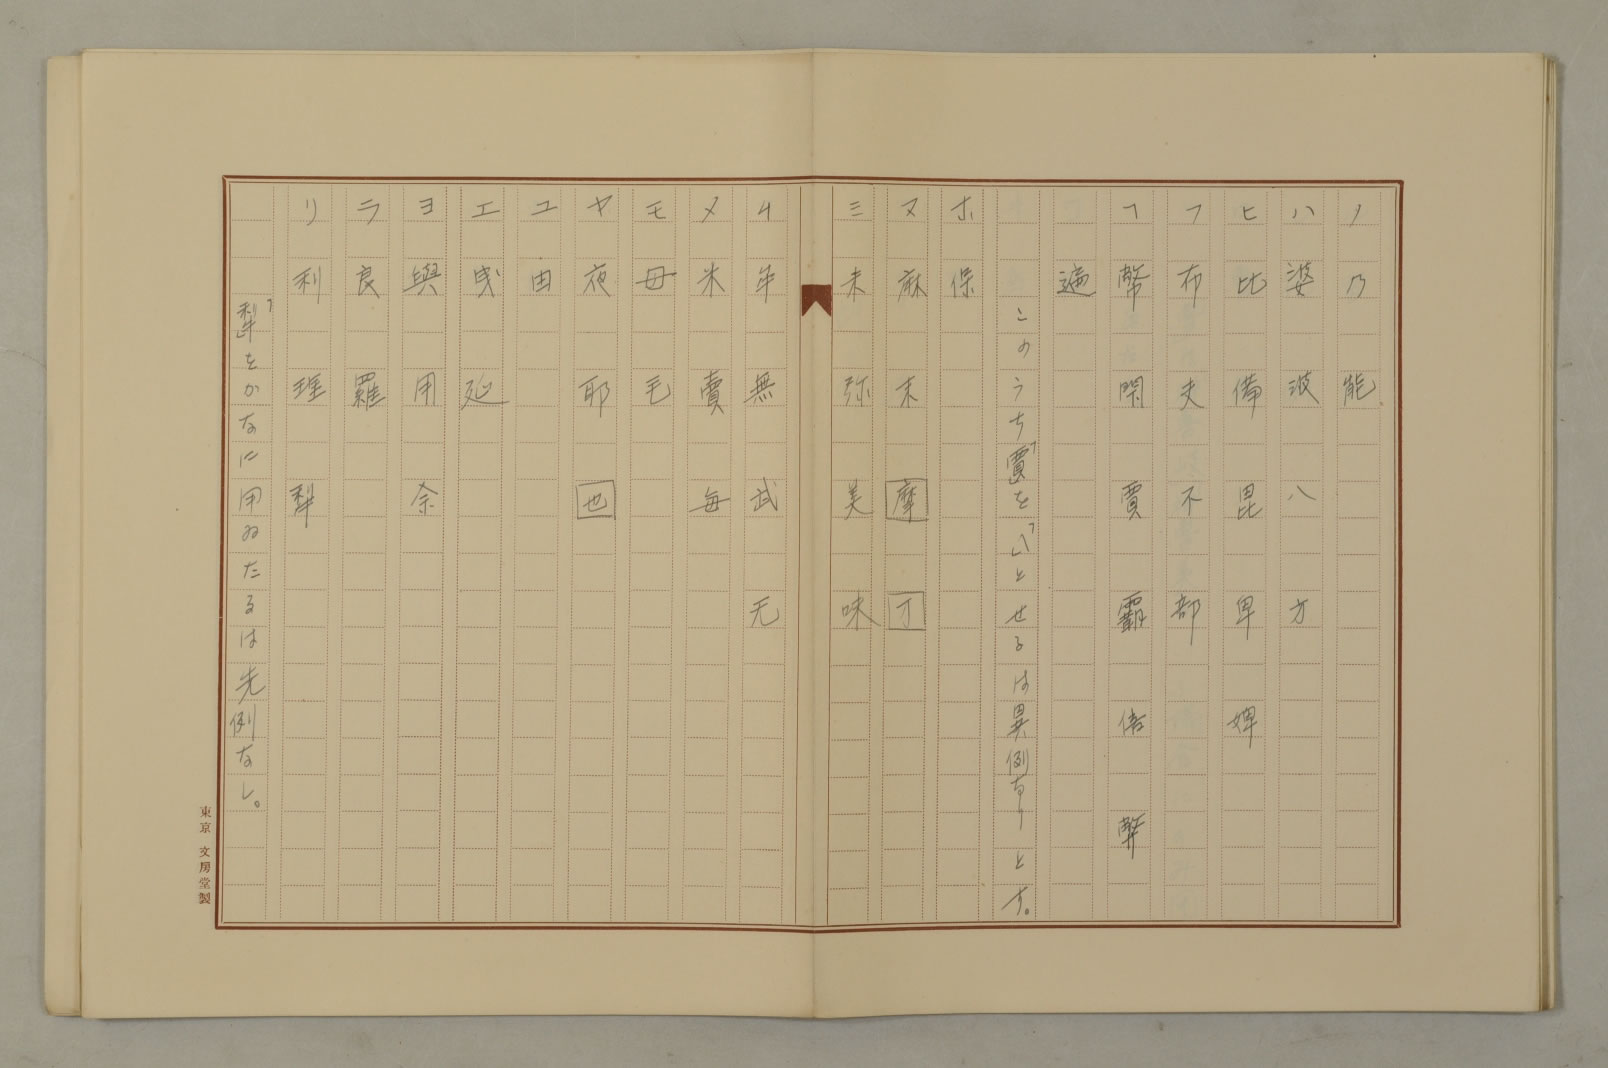 ノ 乃 能
ハ 婆 波 八 方
ヒ 比 備 毘 卑 婢
フ 布 夫 不 部
ヘ 幣 閇 賈 覇 倍 弊
遍
このうち「賈」を「ヘ」とせるは異例なりとす。
ホ 保
マ 麻 末 摩 丁
ミ 未 弥 美 味
ム 牟 無 武 无
メ 米 賣 毎
モ 毋 毛
ヤ 夜 耶 也
ユ 由
エ 曳 延
ヨ 與 用 余
ラ 良 羅
リ 利 理 犁
「犁」をかなに用ゐたるは先例なし。
東京 文房堂製